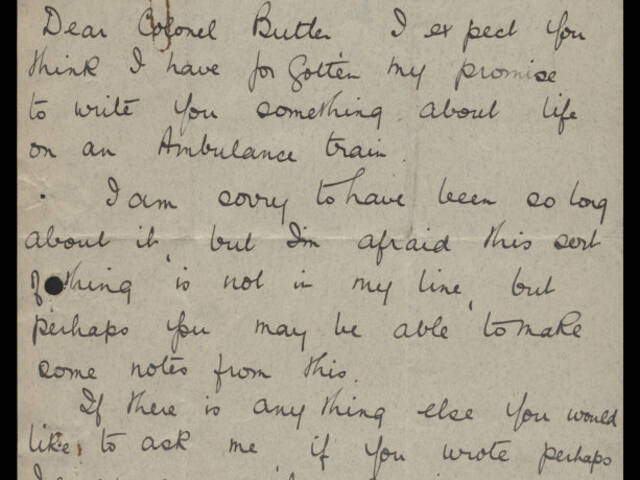 Dear Colonel Butler I expect you
think I have forgotten my promise
to write you something about life
on an Ambulance train.
I am sorry to have been so long
about it, but I'm afraid this sort
of thing is not in my line, but
perhaps you may be able to make
some notes from this.
If there is any thing else you would
like, to ask me, if you wrote perhaps
I